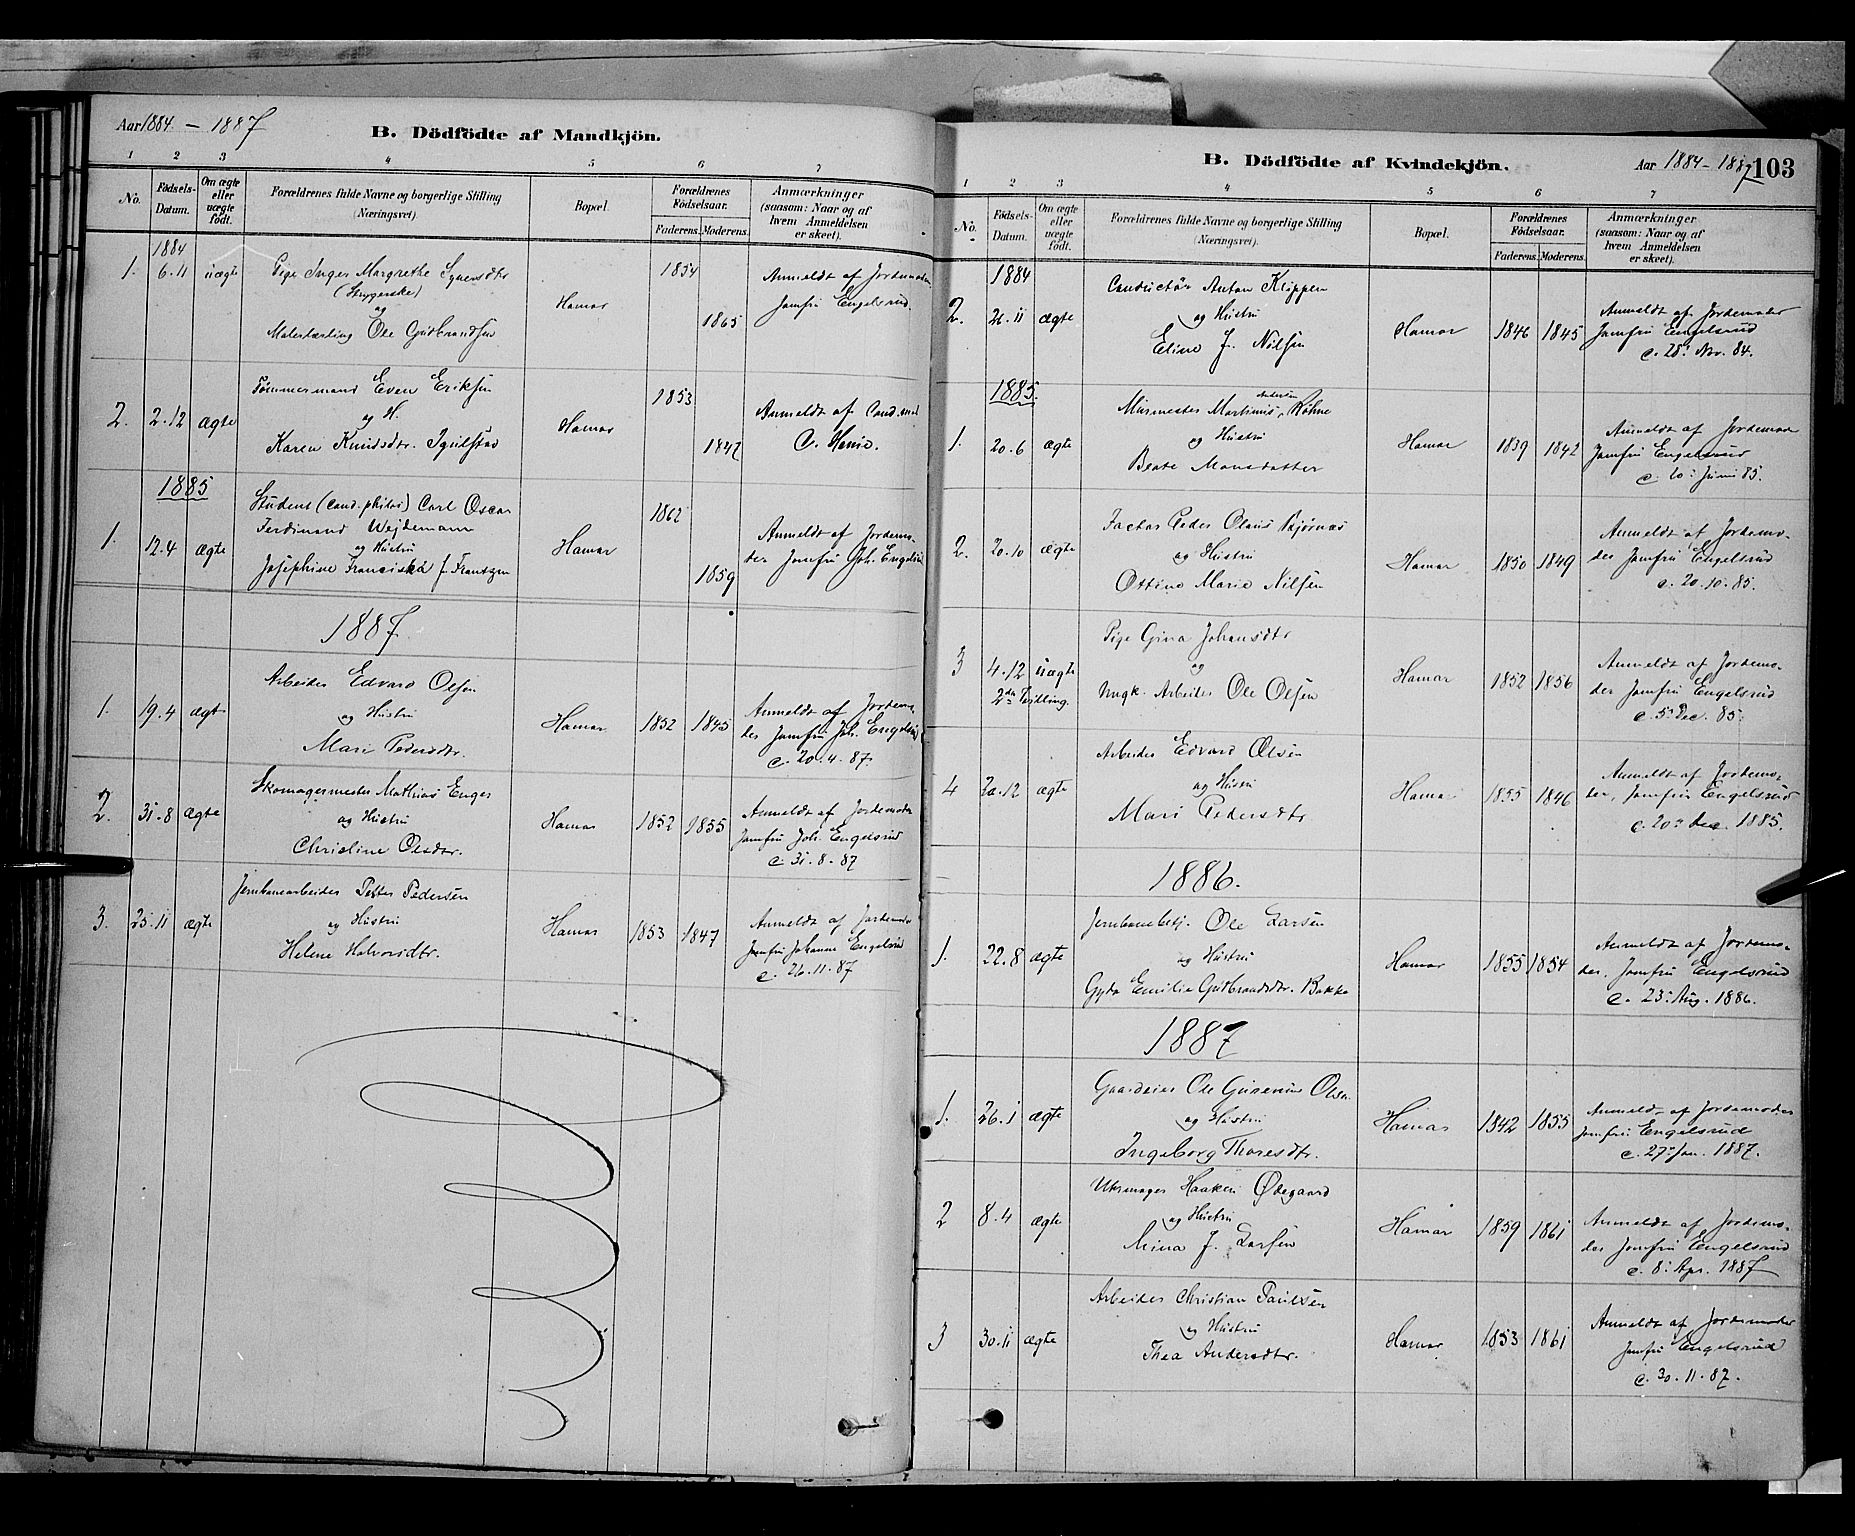 Aar 1884 - 1887
B. Dödfödte af Mandkjön.
1 2 3 4 5 6 7
No. Födsels-Datum. Om ægte eller uægte födt. Forældrenes fulde Navne og borgerlige Stilling (Næringsvei). Bopæl. Forældrenes Födselsaar. Faderens. Moderens. Anmærkninger (saasom: Naar og af hvem Anmeldelsen er skeet).
1884
1. 6.11 uægte Pige Inger Margrethe Syversdtr 1854 Anmeldt af Jordemoder
(Strygerske)
og Hamar Jomfru Engelsrud.
Malerlærling Ole Gudbrandsen 1865
Tømmermand Even Eriksen 1853
2. 2.12 ægte og H. Hamar Anmeldt af Cand. med
Karen Knudsdtr. 1847 C.
1885
Student (Cand. philos) Carl Oscar 1862
1. 12.4 ægte Ferdinand Wejdemann Hamar Anmeldt af Jordemo-
og Hustru der Jomfru Joh. Engelsrud
Josephine Franciska f. Frantzen 1859
1887
Arbeider Edvard Olsen
1. 19.4 ægt og Hustru Hamar 1852 1845 Anmeldt af Jordemo-
Mari Pedersdtr. der Jomfru Joh. Engelsrud
c. 20.4.87.
Skomagermester Mathias Enger
2. 31.8 ægte og Hustru Hamar 1852 1855 Anmeldt af Jordemoder
Christine Olsdtr. Jomfru Joh. Engelsrud
c. 31.8.87
Jernbanearbeider Petter Pedersen
3. 25.11 ægte og Hustru Hamar 1853 1847 Anmeldt af Jordemoder
Helene Halvorsdtr. Jomfru Johanne Engelsrud
c. 26.11.87
B. Dödfödte af Kvindekjön.
Aar 1884-1887 103
1 2 3 4 5 6 7
No. Födsels-Datum. Om ægte eller uægte födt. Forældrenes fulde Navne og borgerlige Stilling (Næringsvei). Bopæl. Forældrenes Födselsaar. Faderens. Moderens. Anmærkninger (saasom: Naar og af hvem Anmeldelsen er skeet).
1884
Conductør Anton Klippen
2. 26.11 ægte og Hustru Hamar 1846 1845 Anmeldt af Jordemoder
Eline f. Nilsen Jomfru Engelsrud
c. 28. Nov. 84.
1885.
Murmester Martinus Røhne
1. 20.6 ægte og Hustru Hamar 1839 1842 Anmeldt af Jordemoder
Beate Monsdatter Jomfru Engelsrud
c. 20. Juni 85.
Factor Peder Olaus Bjørnæs
2. 20.10 ægte og Hustru Hamar 1850 1849 Anmeldt af Jordemo-
Ottine Marie Nilsen der Jomfru Engelsrud
c. 20.10.85.
Pige Gina Johansdtr
3 4.12 uægte og Hamar 1852 1856 Anmeldt af Jordemo-
2den Tvilling. Ungk. Arbeider Ole Olsen der Jomfru Engelsrud
c. 5 Dec. 85.
Arbeider Edvard Olsen
4 20.12 ægte og Hustru Hamar 1855 1846 Anmeldt af Jordemo-
Mari Pedersdtr der, Jomfru Engelsrud
c. 20 Dec. 1885.
1886.
Jernbanebetj. Ole Larsen
1. 22.8 ægte og Hustru Hamar 1855 1854 Anmeldt af Jordemo-
Gyda Emilie Gudbrandsdtr. Bakke der, Jomfru Engelsrud
c. 23. Aug. 1886.
1887
Gaardeier Ole Olsen
1. 26.1 ægte og Hustru Hamar 1842 1855 Anmeldt af Jordemoder
Ingeborg Thoresdtr. Jomfru Engelsrud
c. 27 Jan. 1887.
Uhrmager Haaken Ødegaard
2 8.4 ægte og Hustru Hamar 1859 1861 Anmeldt af Jordemo-
Mina f. Larsen der Jomfru Engelsrud
c. 8. Apr. 1887
Arbeider Christian Paulsen
3 30.11 ægte og Hustru Hamar 1853 1861 Anmeldt af Jordemoder
Thea Andersdtr. Jomfru Engelsrud
c. 30.11.87.